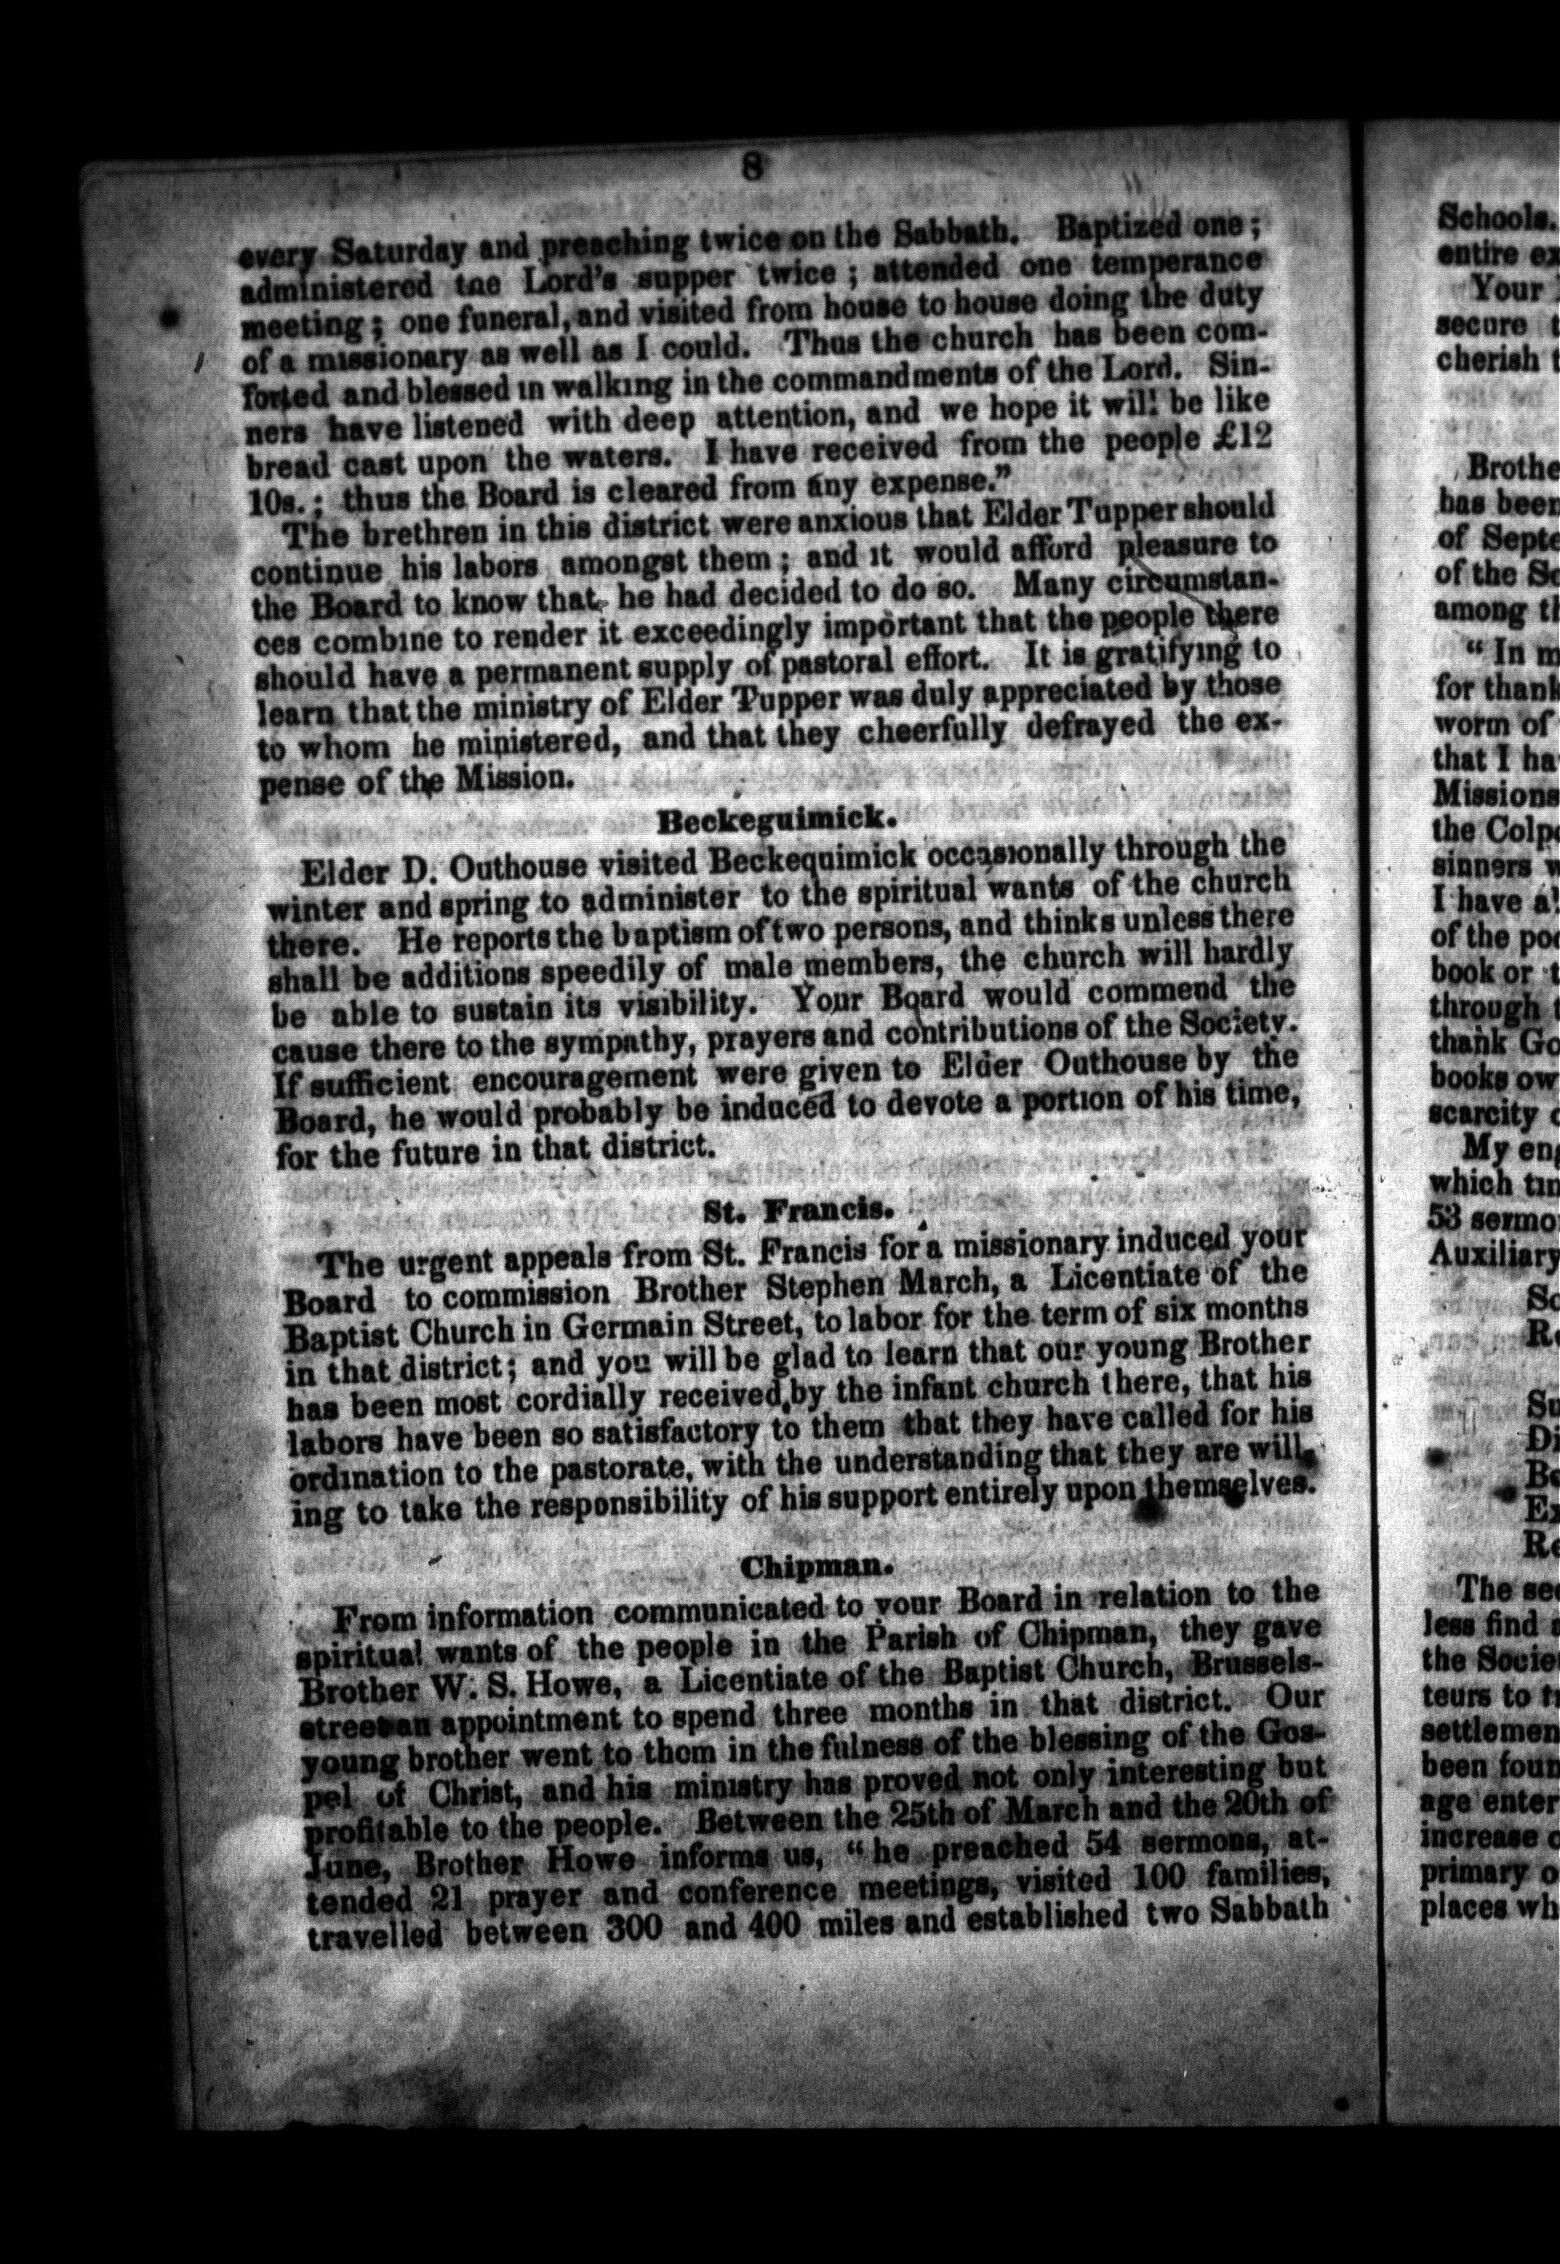 8
every Saturday and preaching twice on the Sabbath. Baptized one;
administered the Lord's supper twice; attended one temperance
meeting; one funeral, and visited from house to house doing the duty
of a missionary as well as I could. Thus the church has been com-
forted and blessed in walking in the commandments of the Lord. Sin-
ners have listened with deep attention, and we hope it will be like
bread cast upon the waters. I have received from the people £12
10s.; thus the Board is cleared from any expense."
The brethren in this district were anxious that Elder Tupper should
continue his labors amongst them; and it would afford pleasure to
the Board to know that he had decided to do so. Many circumstan-
ces combine to render it exceedingly important that the people there
should have a permanent supply of pastoral effort. It is gratifying to
learn that the ministry of Elder Tupper was duly appreciated by those
to whom he ministered, and that they cheerfully defrayed the ex-
pense of the Mission.
Beckeguimick.
Elder D. Outhouse visited Beckequimick occasionally through the
winter and spring to administer to the spiritual wants of the church
there. He reports the baptism of two persons, and thinks unless there
shall be additions speedily of male members, the church will hardly
be able to sustain its visibility. Your Board would commend the
cause there to the sympathy, prayers and contributions of the Society.
If sufficient encouragement were given to Elder Outhouse by the
Board, he would probably be induced to devote a portion of his time,
for the future in that district.
St. Francis.
The urgent appeals from St. Francis for a missionary induced your
Board to commission Brother Stephen March, a Licentiate of the
Baptist Church in Germain Street, to labor for the term of six months
in that district; and you will be glad to learn that our young Brother
has been most cordially received by the infant church there, that his
labors have been so satisfactory to them that they have called for his
ordination to the pastorate, with the understanding that they are will-
ing to take the responsibility of his support entirely upon themselves.
Chipman.
From information communicated to your Board in relation to the
spiritual wants of the people in the Parish of Chipman, they gave
Brother W. S. Howe, a Licentiate of the Baptist Church, Brussels-
street an appointment to spend three months in that district. Our
young brother went to them in the fulness of the blessing of the Gos-
pel of Christ, and his ministry has proved not only interesting but
profitable to the people. Between the 25th of March and the 20th of
June, Brother Howe informs us, "he preached 54 sermons, at-
tended 21 prayer and conference meetings, visited 100 families,
travelled between 300 and 400 miles and established two Sabbath
Schools.
entire
Your
secure
cherish
Brothe
has been
of Septe
of the
among
"In
for thank
worm of
that I
Missions
the
sinners
I have
of the
book or
through
thank
books
scarcity
My
which
53
Auxiliary
The
less find
the
teurs to
been
age
increase
primary
places